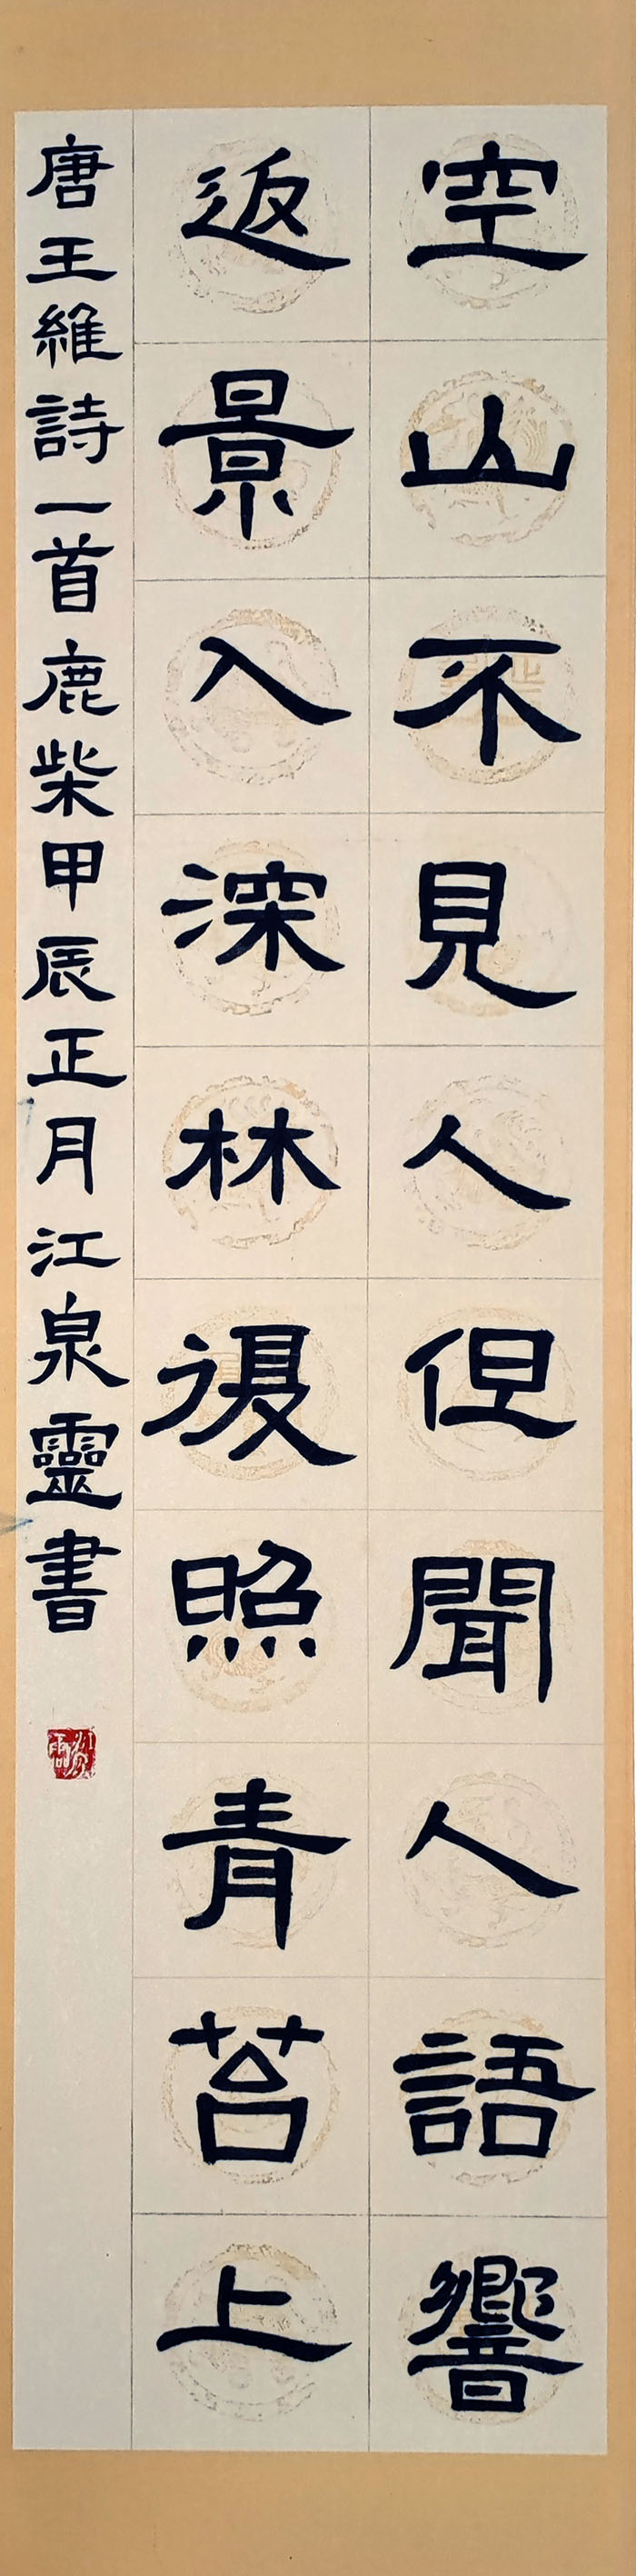 空山不見人但聞人語響
返景入深林復照青苔上
唐王維詩一首鹿柴甲辰正月江泉靈書